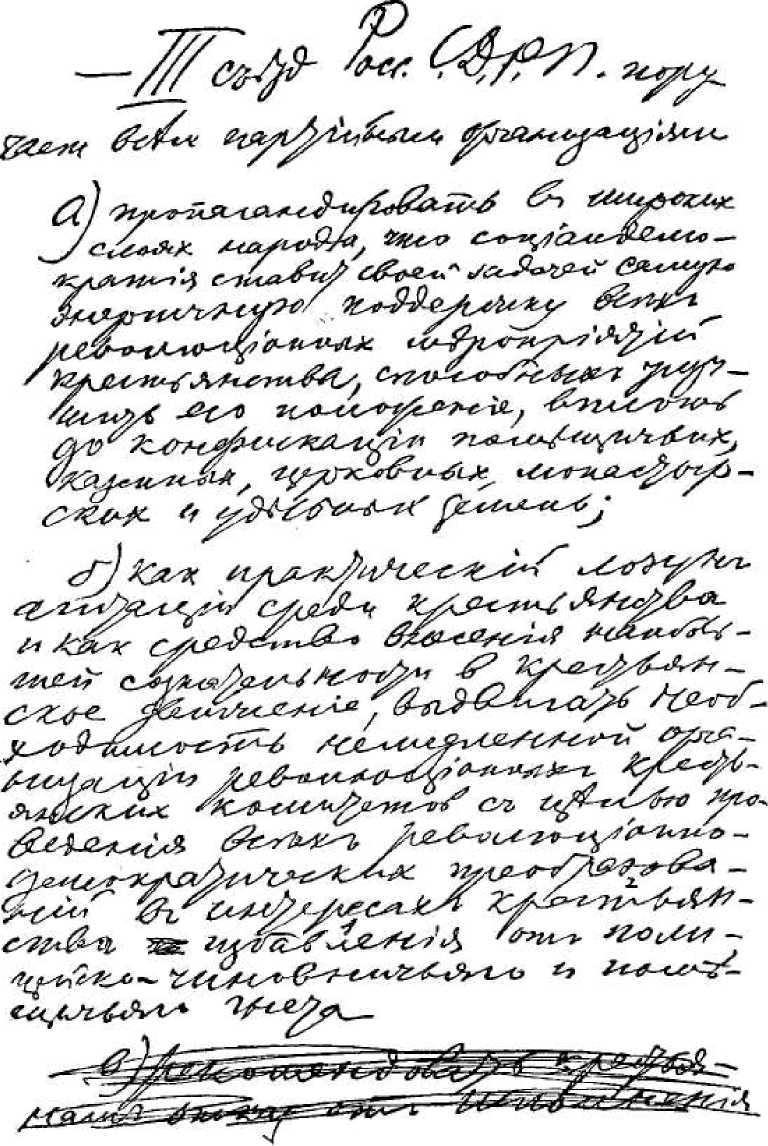 — III съезд Росс. С.Д.Р.П. пору
чает всем партійным организаціям
а) пропагандировать в широких
слоях народа, что соціалдемо-
кратія ставит своей задачей самую
энергичную поддержку всех
революціонных мѣропріятій
крестьянства, способных улуч-
шить его положеніе, вплоть
до конфискаціи помѣщичьих,
казенных, церковных, монастыр-
ских и удѣльных земель;
б) как практическій лозунг
агитаціи среди крестьянства
и как средство внесенія наиболь-
шей сознательности в крестьян-
ское движеніе, выдвигать необ-
ходимость немедленной орга-
низаціи революціонных кресть-
янских комитетов съ цѣлью про-
веденія всѣхъ революціонно-
демократических преобразова-
ній в интересах крестьян-
ства избавленія от поли-
цейско-чиновничьяго и помѣ-
щичьяго гнета
в) рекомендовать крестья-
нам отказ от исполненія